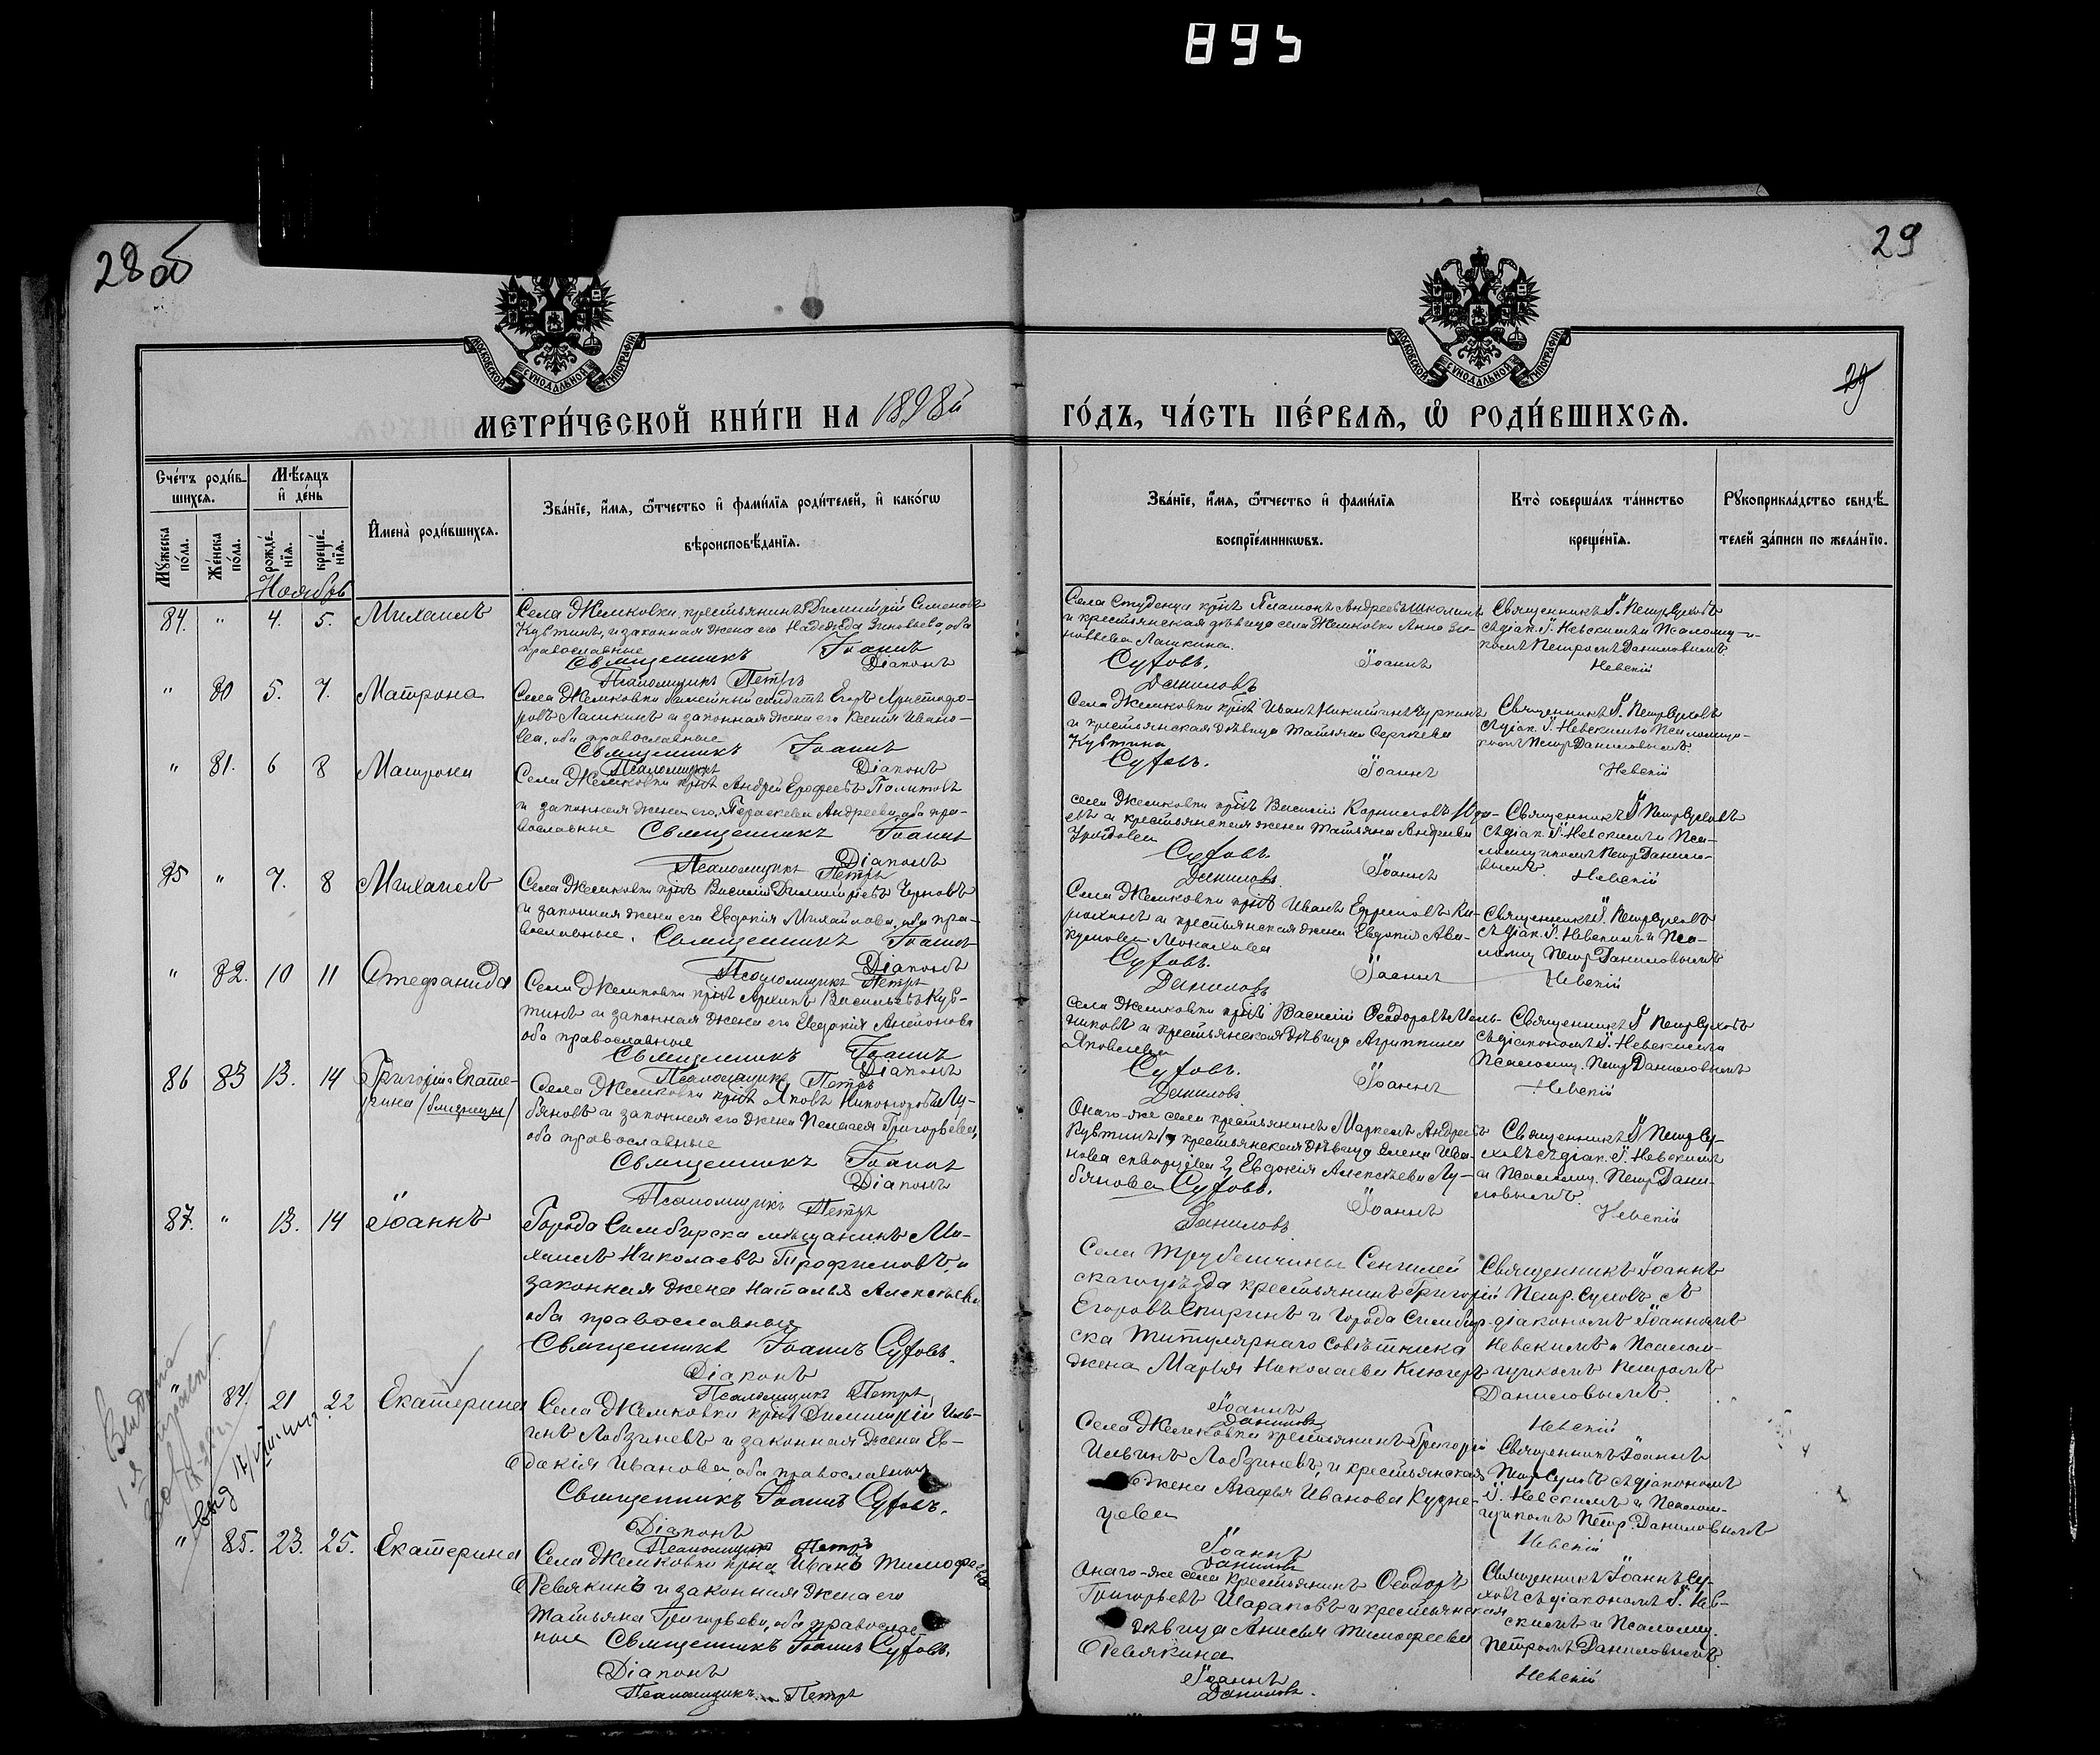 895
28 об
29
29
МОСКОВСКОЙ СѴНОДАЛЬНОЙ ТИПОГРАФІИ
МОСКОВСКОЙ СѴНОДАЛЬНОЙ ТИПОГРАФІИ
МЕТРИ́ЧЕСКОЙ КНИ́ГИ НА 1898й
ГО́ДЪ, ЧА́СТЬ ПЕ́РВАѦ, Ѡ҆ РОДИ́ВШИХСѦ.
Сче́тъ роди́в-
шихся.
Мѣ́сяцъ
и҆ де́нь
Му́жеска по́ла.
Же́нска по́ла.
рожде́-
нїя.
креще́-
нїя.
И҆мена̀ роди́вшихся.
Зва́нїе, и҆́мя, ѻ҆́тчество и҆ фами́лїя роди́телей, и҆ како́гѡ
вѣроисповѣ́данїя.
Зва́нїе, и҆́мя, ѻ҆́тчество и҆ фами́лїя
воспрїе́мникѡвъ.
Кто̀ соверша́лъ та́инство
креще́нїя.
Рꙋкоприкла́дство свидѣ́-
телей за́писи по жела́нїю.
Ноябрь
84. " 4. 5. Михаилъ
Села Жемковки крестьянинъ Димитрій Семеновъ
Кувтинъ, и законная жена его Надежда Зиновьева, оба
православные
Священникъ Іоаннъ
Діаконъ
Псаломщикъ Петръ
Села Студенца крнъ Платонъ Андреевъ Школинъ
и крестьянская дѣвица села Жемковки Анна Зи-
новьева Лашкина.
Суховъ. Іоаннъ
Даниловъ
Священникъ І. Петр Суховъ
съ діак. І. Невскимъ и Псаломщи-
комъ Петромъ Даниловымъ.
Невскій
" 80 5. 7. Матрона
Села Жемковки билетный солдатъ Егоръ Христофо-
ровъ Лашкинъ и законная жена его Ксенія Ивано-
ва, оба православные
Священникъ Іоаннъ
Псаломщикъ Діаконъ
Села Жемковки крнъ Иванъ Никитинъ Чуркинъ
и крестьянская дѣвица Татьяна Сергѣева
Кувтина
Суховъ. Іоаннъ
Священникъ І. Петр Суховъ
съ діак. І. Невскимъ и Псаломщи-
комъ Петр Даниловымъ.
Невскій
" 81. 6 8 Матрона
Села Жемковки крнъ Андрей Ерофеевъ Политовъ
и законная жена его, Параскева Андреева, оба пра-
вославные Священникъ Іоаннъ
Діаконъ
Псаломщикъ Петръ
села Жемковки крнъ Василій Корниловъ
и крестьянская жена Татьяна Андреева
Суховъ.
Даниловъ. Іоаннъ
Священникъ І Петр Суховъ
съ діак. І. Невскимъ и Пса-
ломщикомъ Петр Данило-
вымъ. Невскій
85 " 7. 8 Михаилъ
Села Жемковки крнъ Василій Димитріевъ Черновъ
и законная жена его Евдокія Михайлова, оба пра-
вославные. Священникъ Іоаннъ
Діаконъ
Псаломщикъ Петръ
Села Жемковки крнъ Иванъ Ефремовъ Ки-
рюхинъ и крестьянская жена Евдокія Ава-
кумова Монахова
Суховъ. Іоаннъ
Даниловъ
Священникъ І. Петр Суховъ
съ діак. І. Невскимъ и Пса-
ломщ Петр Даниловымъ
Невскій
" 82. 10 11 Стефанида
Села Жемковки крнъ Архипъ Васильевъ Кув-
тинъ и законная жена его Евдокія Антонова
оба православные
Священникъ Іоаннъ
Діаконъ
Псаломщикъ Петръ
Села Жемковки крнъ Василій Ѳеодоровъ Мель-
никовъ и крестьянская дѣвица Агриппина
Яковлева
Суховъ. Іоаннъ
Даниловъ
Священникъ І Петр Суховъ
съ діакономъ І. Невскимъ и
Псаломщ. Петр Даниловымъ
Невскій
86 83 13. 14 Григорій и Екате-
рина /близнецы/
Села Жемковки крнъ Яковъ Никаноровъ Лу-
бяновъ и законная его жена Пелагея Григорьева,
оба православные
Священникъ Іоаннъ
Діаконъ
Псаломщикъ Петръ
Онаго-же села крестьянинъ Маркелъ Андреевъ
Кувтинъ 1, крестьянская дѣвица Елена Ива-
нова Скворцева 2, Евдокія Алексѣева Лу-
бянова Суховъ. Іоаннъ
Даниловъ
Священникъ І Петр Су-
ховъ съ діак. І. Невскимъ
и Псаломщ. Петр Дани-
ловымъ
Невскій
87. " 13. 14 Іоаннъ
Города Симбирска мѣщанинъ Ми-
хаилъ Николаевъ Трофимовъ, и
законная жена Наталья Алексѣева
оба православные
Священникъ Іоаннъ Суховъ.
Діаконъ
Псаломщикъ Петръ
Села Трубетчины Сенгилей-
скаго уѣзда крестьянинъ Григорій
Егоровъ Спиринъ и города Симбир-
ска Титулярнаго Совѣтника
жена Марья Николаева Клюгеръ
Іоаннъ
Даниловъ
Священникъ Іоаннъ
Петр. Суховъ съ
діакономъ Іоанномъ
Невскимъ и Псалом-
щикомъ Петромъ
Даниловымъ
Невскій
" 84. 21 22 Екатерина
Села Жемковки крнъ Димитрій Иль-
инъ Лобзиневъ и законная жена Ев-
докія Иванова, оба православные
Священникъ Іоаннъ Суховъ.
Діаконъ
Псаломщикъ Петръ
Села Жемковки крестьянинъ Григорій
Ильинъ Лобзиневъ, и крестьянская
жена Агафья Иванова Кузне-
цева
Іоаннъ
Даниловъ
Священникъ Іоаннъ
Петр Суховъ съ діакономъ
І. Невскимъ и Псалом-
щикомъ Петр. Даниловымъ
Невскій
" 85. 23. 25. Екатерина
Села Жемковки крнъ Иванъ Тимофеевъ
Ревякинъ и законная жена его
Татьяна Григорьева, оба православ-
ные Священникъ Іоаннъ Суховъ.
Діаконъ
Псаломщикъ Петръ
Онаго-же села крестьянинъ Ѳеодоръ
Григорьевъ Шараповъ и крестьянская
дѣвица Анисья Тимофеева
Ревякина
Іоаннъ
Даниловъ.
Священникъ Іоаннъ Су-
ховъ съ діакономъ І. Нев-
скимъ и Псаломщ.
Петромъ Даниловымъ.
Невскій
Выдана